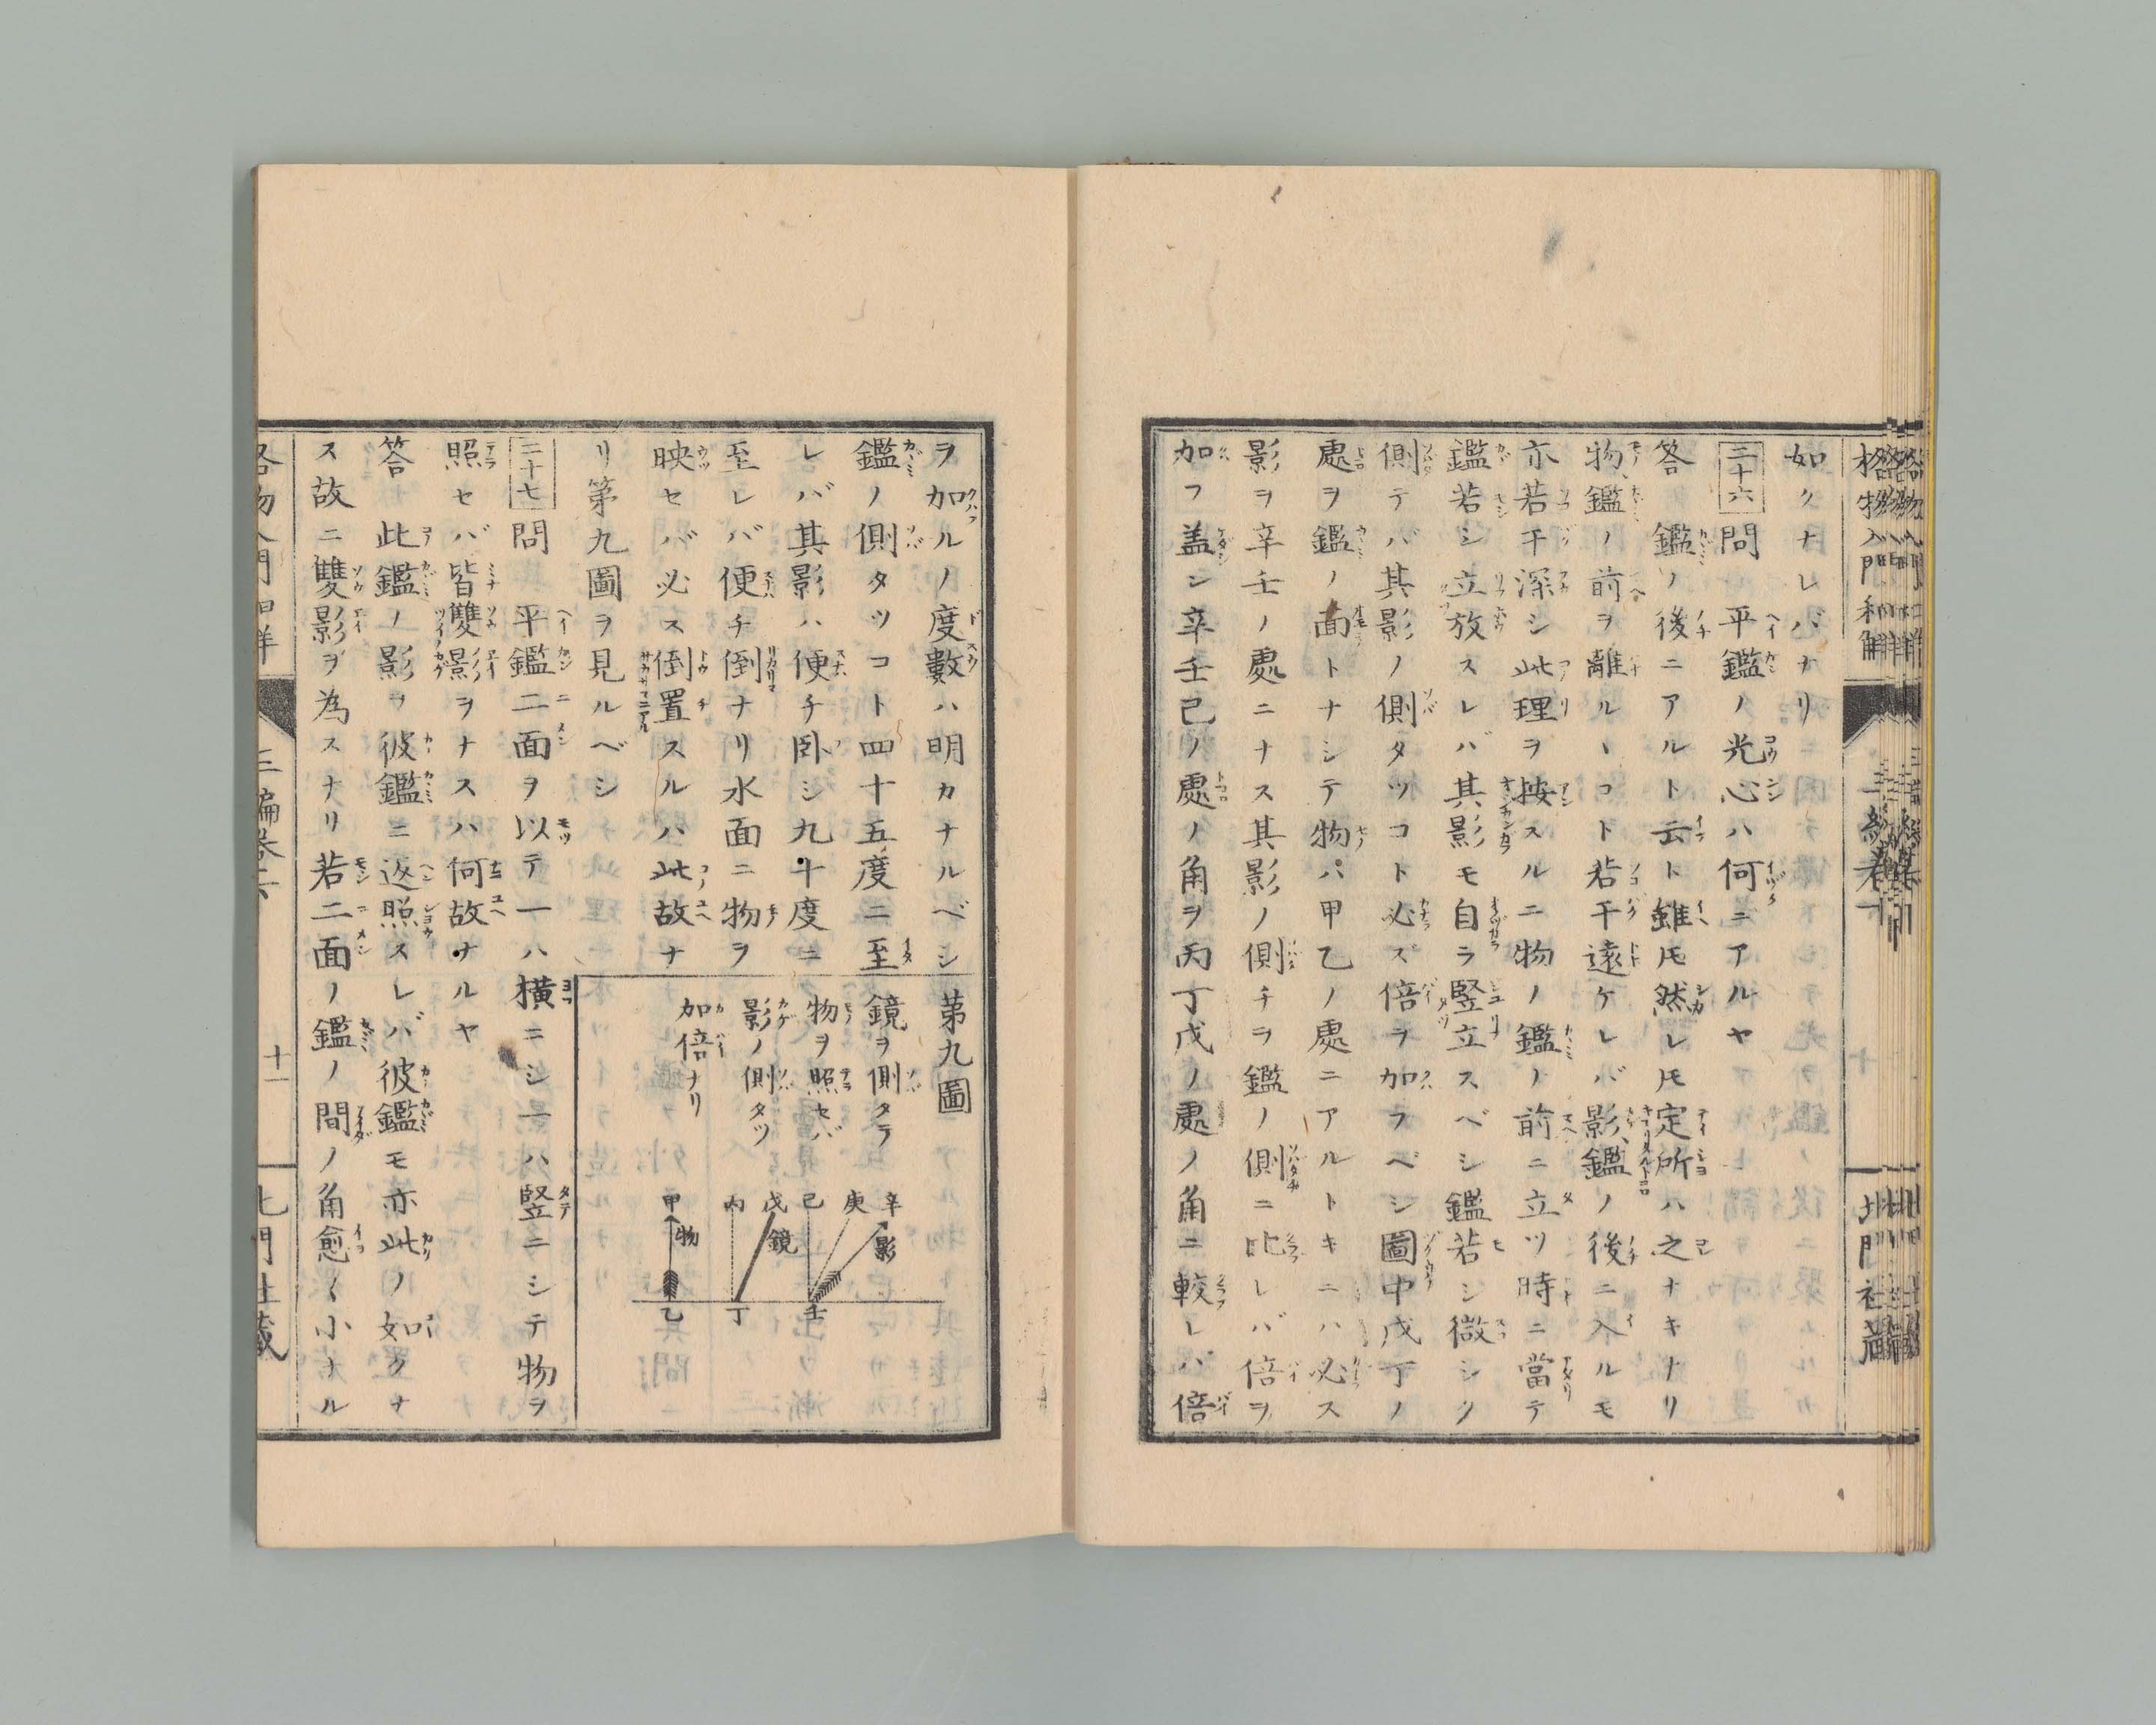 格物入門和解
北門社藏
如クナレバナリ
二十六 問 平鑑ノ光心ハ何ニアルヤ
答 鑑ノ後ニアルト云ト雖𪜈然レ𪜈定所ハ之ナキナリ
物、鑑ノ前ヲ離ルヽコト若干遠ケレバ影、鑑ノ後ニ入ルモ
亦若干深シ此理ヲ按スルニ物ノ鑑ノ前ニ立ツ時ニ當テ
鑑若シ立放スレバ其影モ自ラ竪立スベシ鑑若シ微シク
側テバ其影ノ側タツコト必ズ倍ヲ加フベシ圖中戊丁ノ
處ヲ鑑ノ面トナシテ物ハ甲乙ノ處ニアルトキニハ必ス
影ヲ辛壬ノ處ニナス其影ノ側チヲ鑑ノ側ニ比レバ倍ヲ
加フ盖シ辛壬己ノ處ノ角ヲ丙丁戊ノ處ノ角ニ較レバ倍
ヲ加ルノ度數ハ明カナルベシ
鑑ノ側タツコト四十五度ニ至
レバ其影ハ便チ卧シ九十度ニ
至レバ便チ倒ナリ水面ニ物ヲ
映セバ必ス倒置スルハ此故ナ
リ第九圖ヲ見ルベシ
第九圖
鏡ヲ側タテ
物ヲ照セバ
影ノ側タツ
加倍ナリ
辛
影
庚
己
壬
戊
鏡
丙
丁
甲
物
乙
二十七 問 平鑑二面ヲ以テ一ハ横ニシ一ハ竪ニシテ物ヲ
照セバ皆雙影ヲナスハ何故ナルヤ
答 此鑑ノ影ヲ彼鑑ニ返照スレバ彼鑑モ亦此ノ如クナ
ス故ニ雙影ヲ為スナリ若二面ノ鑑ノ間ノ角愈〻小ナル
格物入門和解
三編卷六
十一
北門社藏